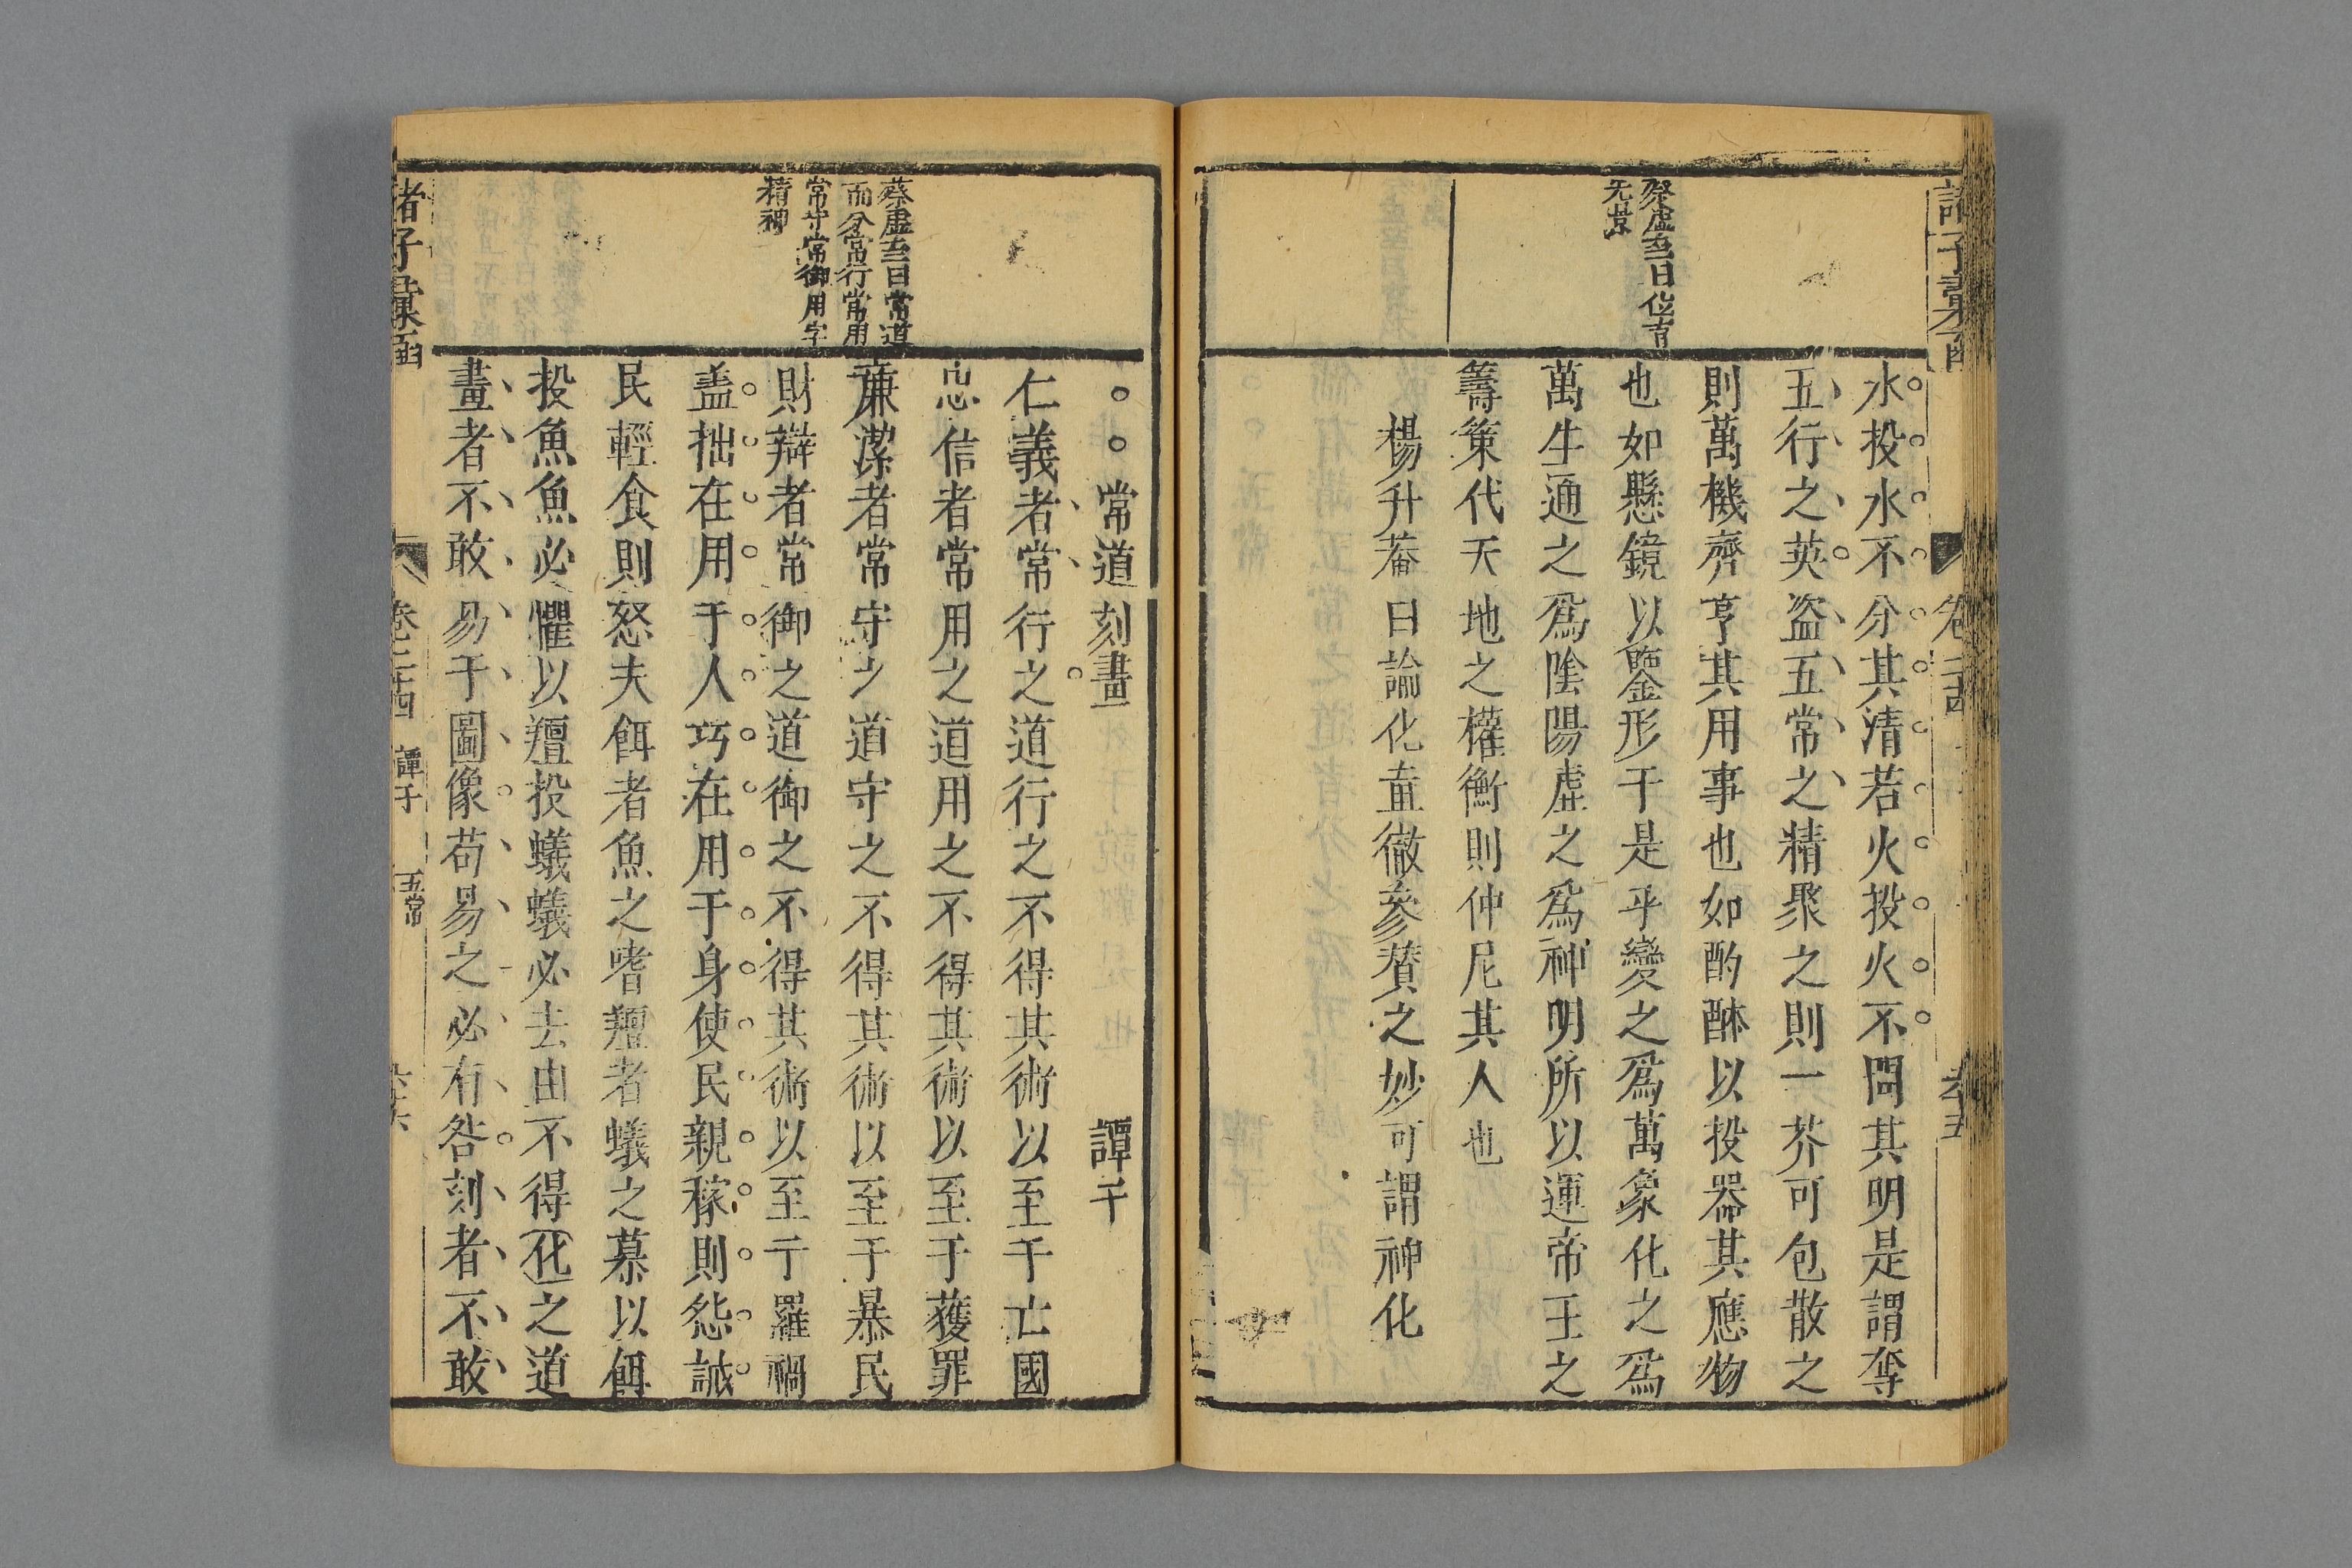 蔡虛齋曰位育
光景
水投水不分其清若火投火不問其明是謂奪
五行之英盗五常之精聚之則一芥可包散之
則萬機齊亨其用事也如酌醂以投器其應物
也如懸鏡以鑒形于是乎變之爲萬象化之爲
萬生通之爲陰陽虛之爲神明所以運帝王之
籌策代天地之權衡則仲尼其人也
楊升菴曰論化直徹參賛之妙可謂神化
蔡虛齋曰常道
而分常行常用
常守常御用字
精神
常道 刻畫 譚子
仁義者常行之道行之不得其術以至于亡國
忠信者常用之道用之不得其術以至于獲罪
廉潔者常守之道守之不得其術以至于暴民
財辯者常御之道御之不得其術以至于羅禍
盖拙在用于人巧在用于身使民親稼則怨誡
民輕食則怒夫餌者魚之嗜羶者蟻之慕以餌
投魚魚必懼以羶投蟻蟻必去由不得化之道
畫者不敢易于圖像苟易之必有咎刻者不敢
諸子彙函
卷二十四 譚子 五常 六十六